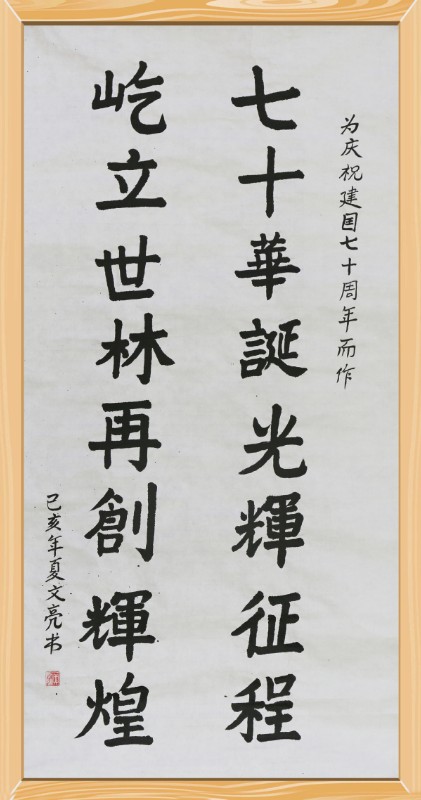 为庆祝建国七十周年而作
七十華誕光輝征程
屹立世林再創輝煌
己亥年夏文亮书